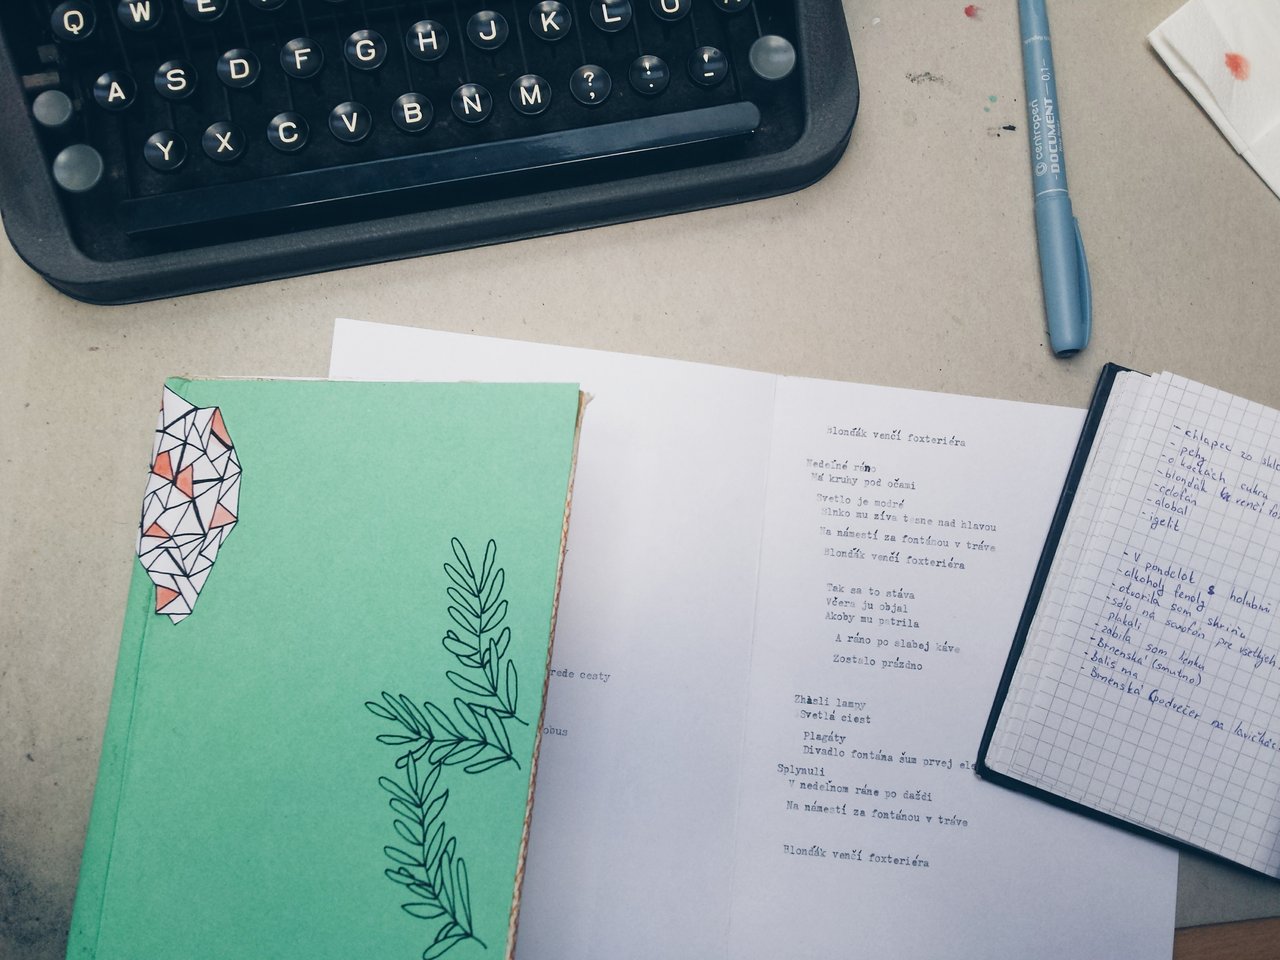 Q W E
A S D F G H J K L
Y X C V B N M ? , ! . -
centropen
DOCUMENT 0.1
Blonďák venčí foxteriéra
Nedeľné ráno
Má kruhy pod očami
Svetlo je modré
Slnko mu zíva tesne nad hlavou
Na námestí za fontánou v tráve
Blonďák venčí foxteriéra
Tak sa to stáva
Včera ju objal
Akoby mu patrila
A ráno po slabej káve
Zostalo prázdno
Zhasli lampy
Svetlá ciest
Plagáty
Divadlo fontána šum prvej ele
Splynuli
V nedeľnom ráne po daždi
Na námestí za fontánou v tráve
Blonďák venčí foxteriéra
rede cesty
obus
- chlapec zo skl
- pehy
- o kockách cukru
- blonďák venčí fo
- celofán
- alobal
- igelit
- V pondelok s holubmi
- alkoholy fenoly
- otvorila som skriňu
- sólo na saxofón pre všetkých
plakali
- zabila som lienku
- Brnenská (smutno)
- Balíš ma
- Brnenská (podvečer na lavičkác